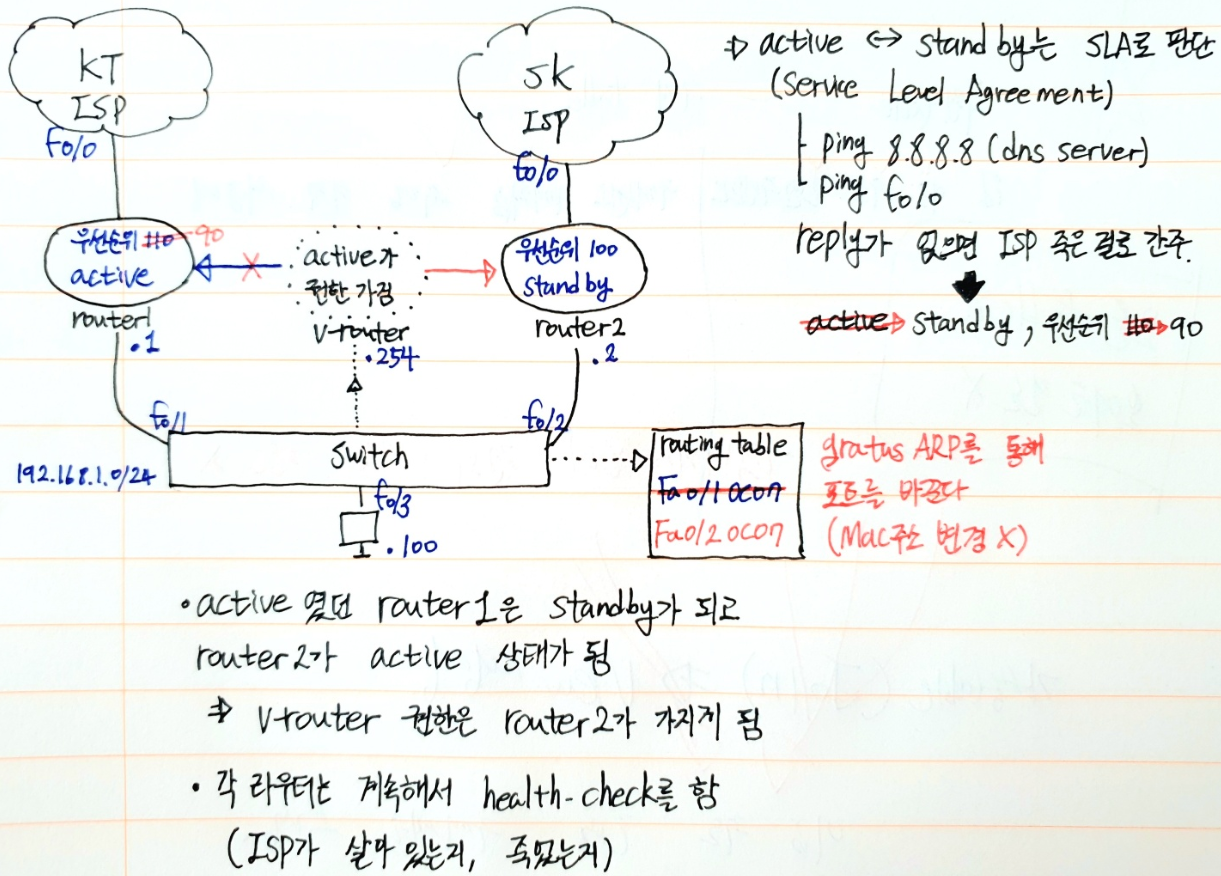 KT
ISP
fo/0
SK
ISP
fo/0
⇒ active ↔ stand by는 SLA로 판단
(Service Level Agreement)
ping 8.8.8.8 (dns server)
ping fo/0
reply가 없으면 ISP 죽은 걸로 간주.
active → standby, 우선순위 110 → 90
우선순위 110 → 90
active
router1
.1
active가
권한 가짐
v-router
.254
우선순위 100
stand by
router2
.2
fo/1
fo/2
192.168.1.0/24
Switch
fo/3
.100
routing table
Fa0/1 0C07
Fa0/2 0C07
gratus ARP를 통해
포트를 바꾼다
(Mac주소 변경 X)
• active 였던 router1은 standby가 되고
router2가 active 상태가 됨
⇒ v-router 권한은 router2가 가지게 됨
• 각 라우터는 계속해서 health-check를 함
(ISP가 살아 있는지, 죽었는지)